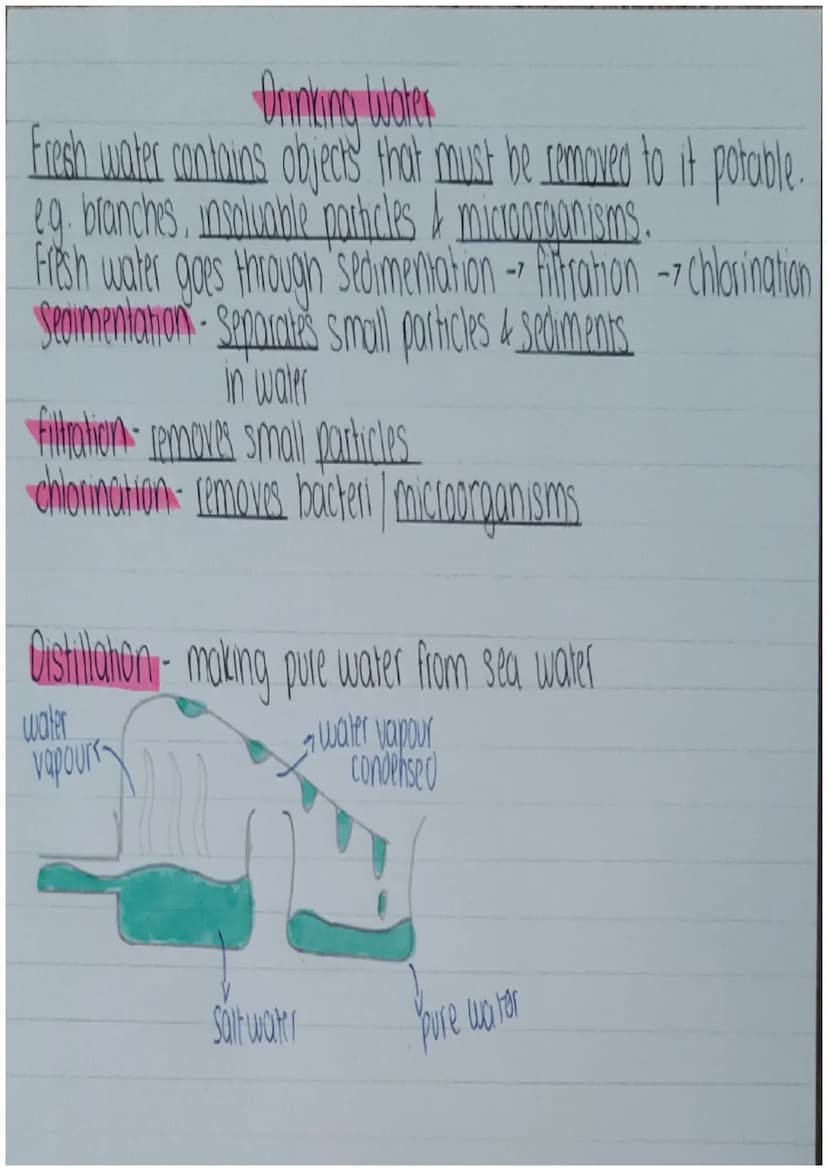 Drinking Water
Fresh water contains objects that must be removed to it potable.
e.g. branches, insoluable particles & microorganisms.
Fresh water goes through sedimentation → filtration → chlorination
Sedimentation - Separates small particles & sediments
in water
filtration - removes small particles
chlorination - removes bacteri / microorganisms
Distillation - making pure water from sea water
water
vapour
water vapour
condensed
salt water
pure water